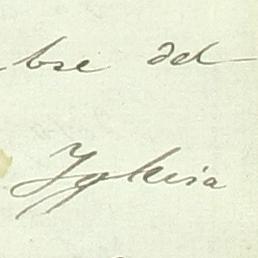 bre del
Yglesia